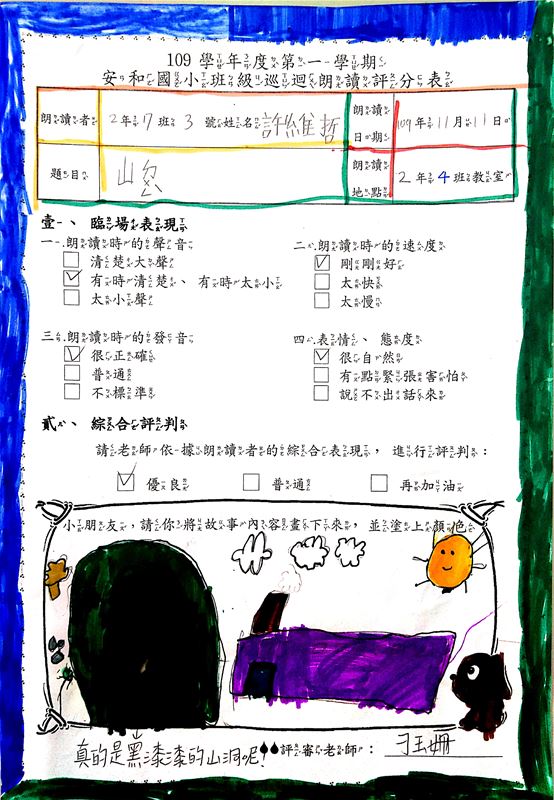 109學年度第一學期
安和國小班級巡迴朗讀評分表
朗讀者 2年7班3號姓名許維哲 朗讀日期 109年11月11日
題目 山ㄉㄨㄥˋ 朗讀地點 2年4班教室
壹、臨場表現
一、朗讀時的聲音
清楚大聲
有時清楚、有時太小
太小聲
二、朗讀時的速度
剛剛好
太快
太慢
三、朗讀時的發音
很正確
普通
不標準
四、表情、態度
很自然
有點緊張害怕
說不出話來
貳、綜合評判
請老師依據朗讀者的綜合表現,進行評判:
優良 普通 再加油
小朋友,請你將故事內容畫下來,並塗上顏色
真的是黑漆漆的山洞呢!
評審老師:刁玉姍